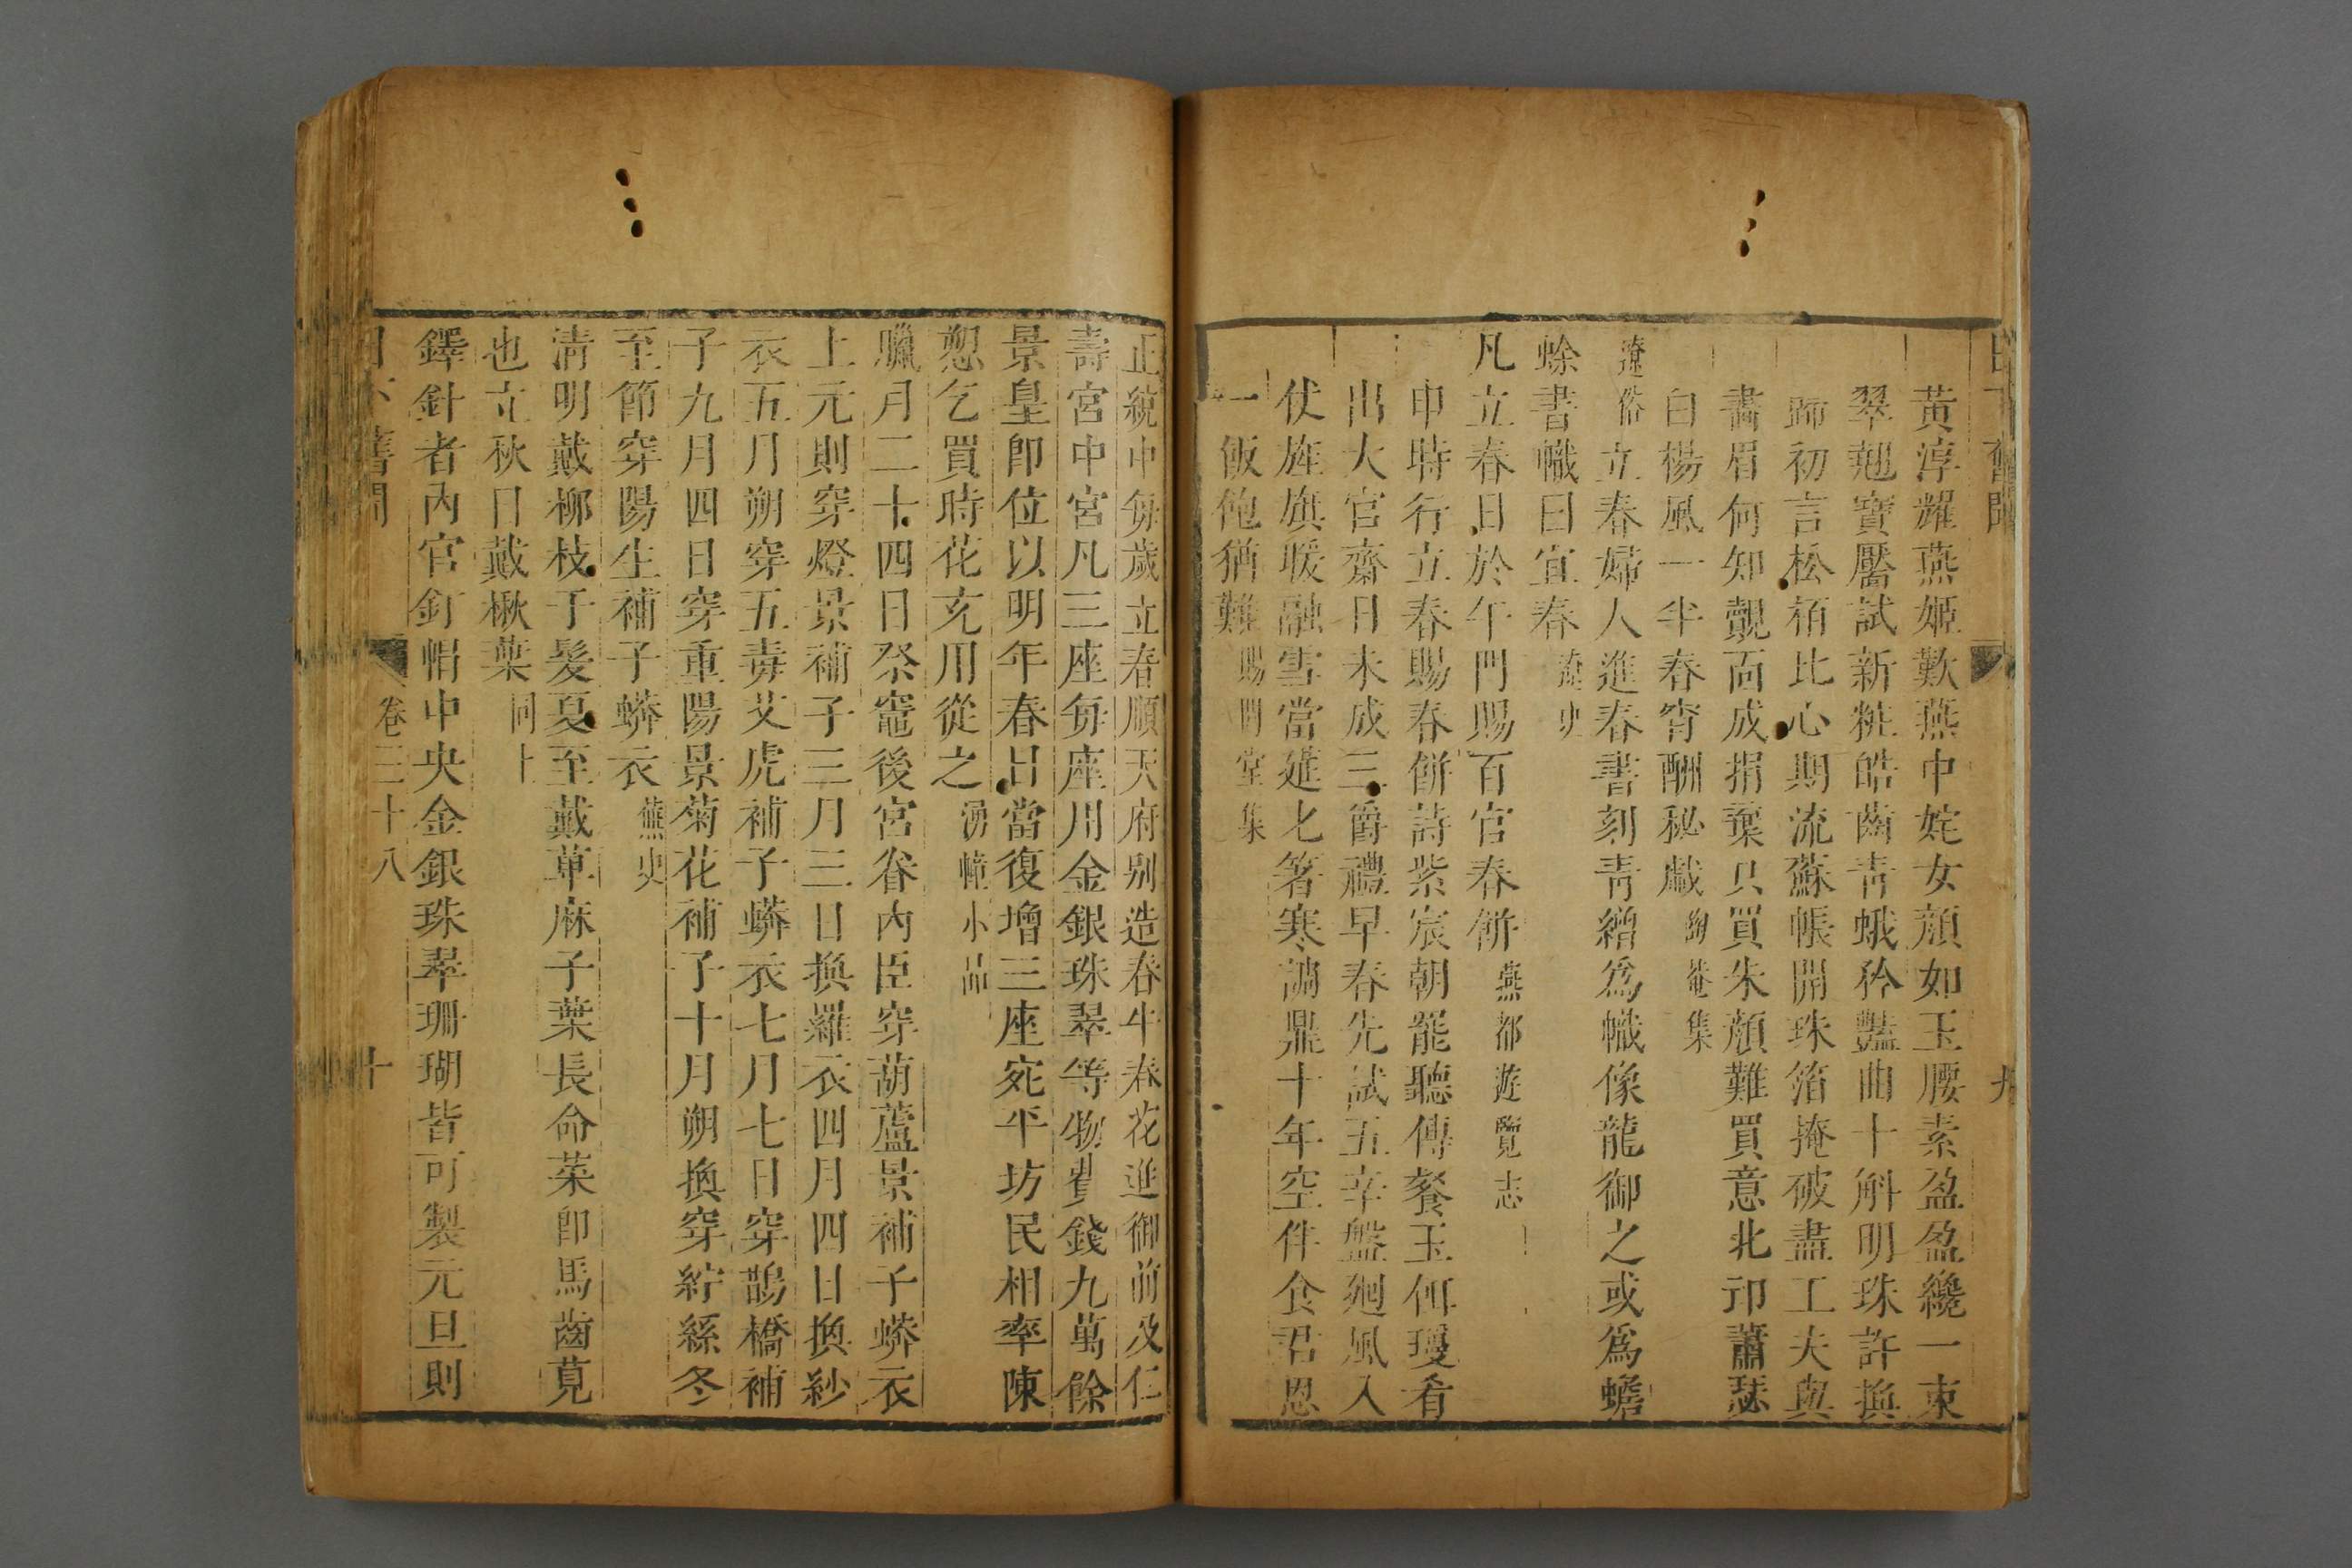 日下舊聞
九
黃淳耀燕姬歎燕中姹女顏如玉腰素盈盈纔一束
翠翹寶靨試新粧皓齒青蛾矜豔曲十斛明珠許換
歸初言松栢比心期流蘇帳開珠箔掩破盡工夫與
畵眉何知覿面成捐棄只買朱顏難買意北邙蕭瑟
白楊風一半春宵酬秘戱陶菴集
遼俗立春婦人進春書刻青繒爲幟像龍御之或爲蟾
蜍書幟曰宜春遼史
凡立春日於午門賜百官春餅燕都遊覽志
申時行立春賜春餅詩紫宸朝罷聽傳餐玉餌瓊肴
出大官齋日未成三爵禮早春先試五辛盤廻風入
仗旌旗暖融雪當筵匕箸寒調鼎十年空伴食君恩
一飯飽猶難賜閒堂集
正統中每歲立春順天府别造春牛春花進御前及仁
壽宮中宮凡三座每座用金銀珠翠等物費錢九萬餘
景皇卽位以明年春日當復增三座宛平坊民相率陳
恕乞買時花充用從之湧幢小品
臘月二十四日祭竈後宮眷內臣穿葫蘆景補子蟒衣
上元則穿燈景補子三月三日換羅衣四月四日換紗
衣五月朔穿五毒艾虎補子蟒衣七月七日穿鵲橋補
子九月四日穿重陽景菊花補子十月朔換穿紵絲冬
至節穿陽生補子蟒衣蕪史
淸明戴柳枝于髮夏至戴草麻子葉長命菜卽馬齒莧
也立秋日戴楸葉同上
鐸針者內官釘帽中央金銀珠翠珊瑚皆可製元旦則
日下舊聞
卷三十八
十